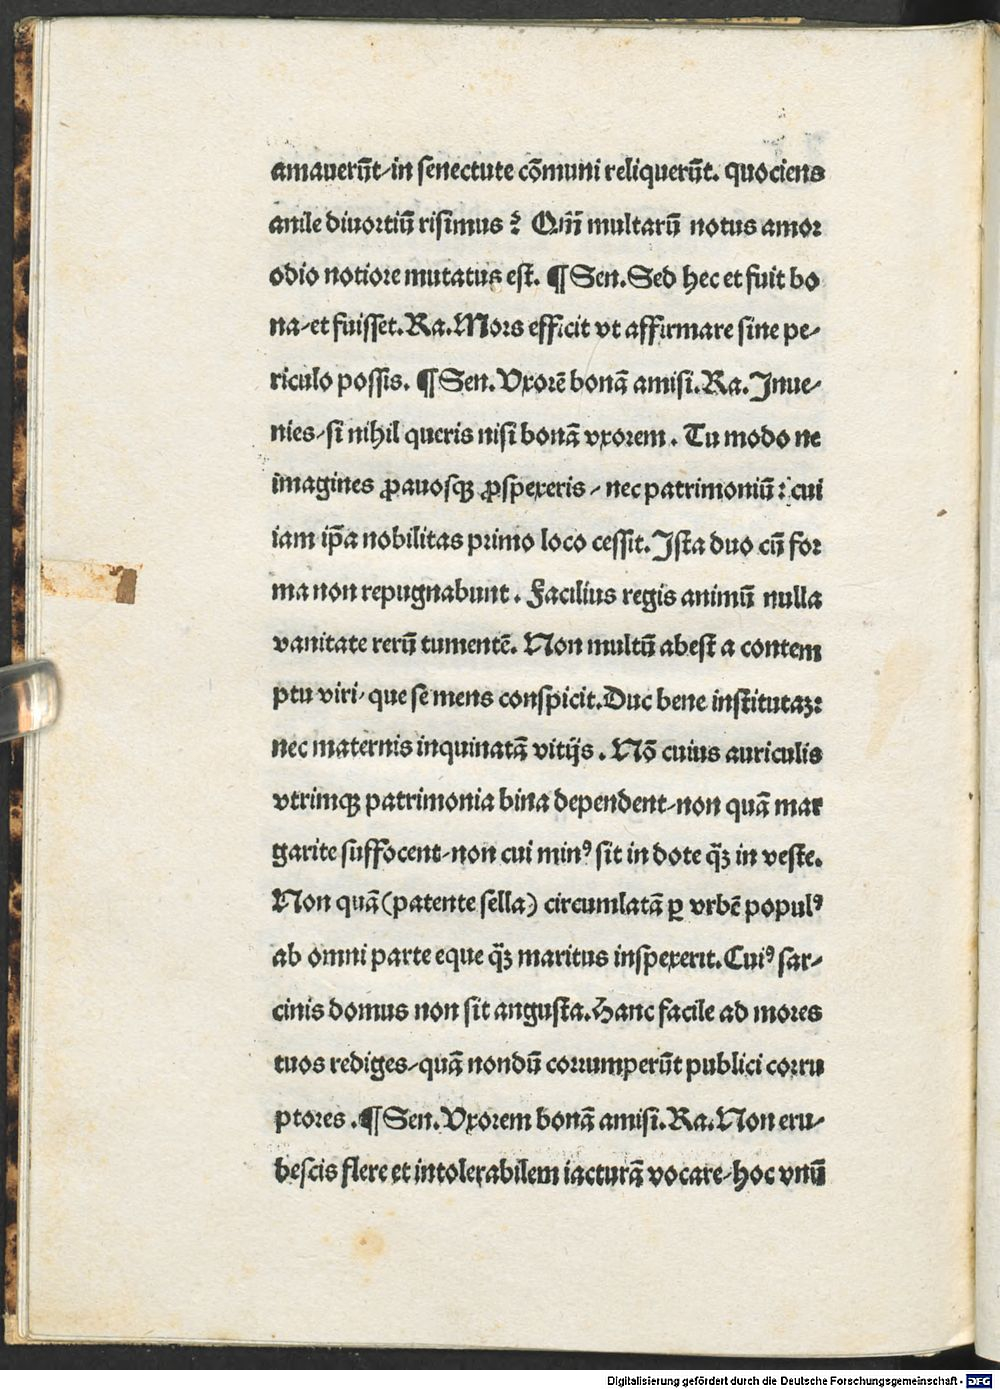 amauerūt⸗in senectute cōmuni reliquerūt. quociens
anile diuortiū risimus ? Qm̄ multarū notus amor
odio notiore mutatus est. ¶ Sen. Sed hec et fuit bo
na⸗et fuisset. Ra. Mors efficit vt affirmare sine pe⸗
riculo possis. ¶ Sen. Vxorē bonā amisi. Ra. Inue⸗
nies⸗si nihil queris nisi bonā vxorem. Tu modo ne
imagines ꝓauosqꝫ ꝓspexeris⸗nec patrimoniū: cui
iam ip̄a nobilitas primo loco cessit. Ista duo cū for
ma non repugnabunt. Facilius regis animū nulla
vanitate rerū tumentē. Non multū abest a contem
ptu viri⸗que se mens conspicit. Duc bene institutaꝫ:
nec maternis inquinatā vitijs. Nō cuius auriculis
vtrimqꝫ patrimonia bina dependent⸗non quā mar
garite suffocent⸗non cui minꝰ sit in dote q̄ꝫ in veste.
Non quā (patente sella) circumlatā ꝑ vrbē populꝰ
ab omni parte eque q̄ꝫ maritus inspexerit. Cuiꝰ sar⸗
cinis domus non sit angusta. Hanc facile ad mores
tuos rediges⸗quā nondū corrumperūt publici corru
ptores. ¶ Sen. Vxorem bonā amisi. Ra. Non eru⸗
bescis flere et intolerabilem iacturā vocare⸗hoc vnū
Digitalisierung gefördert durch die Deutsche Forschungsgemeinschaft - DFG